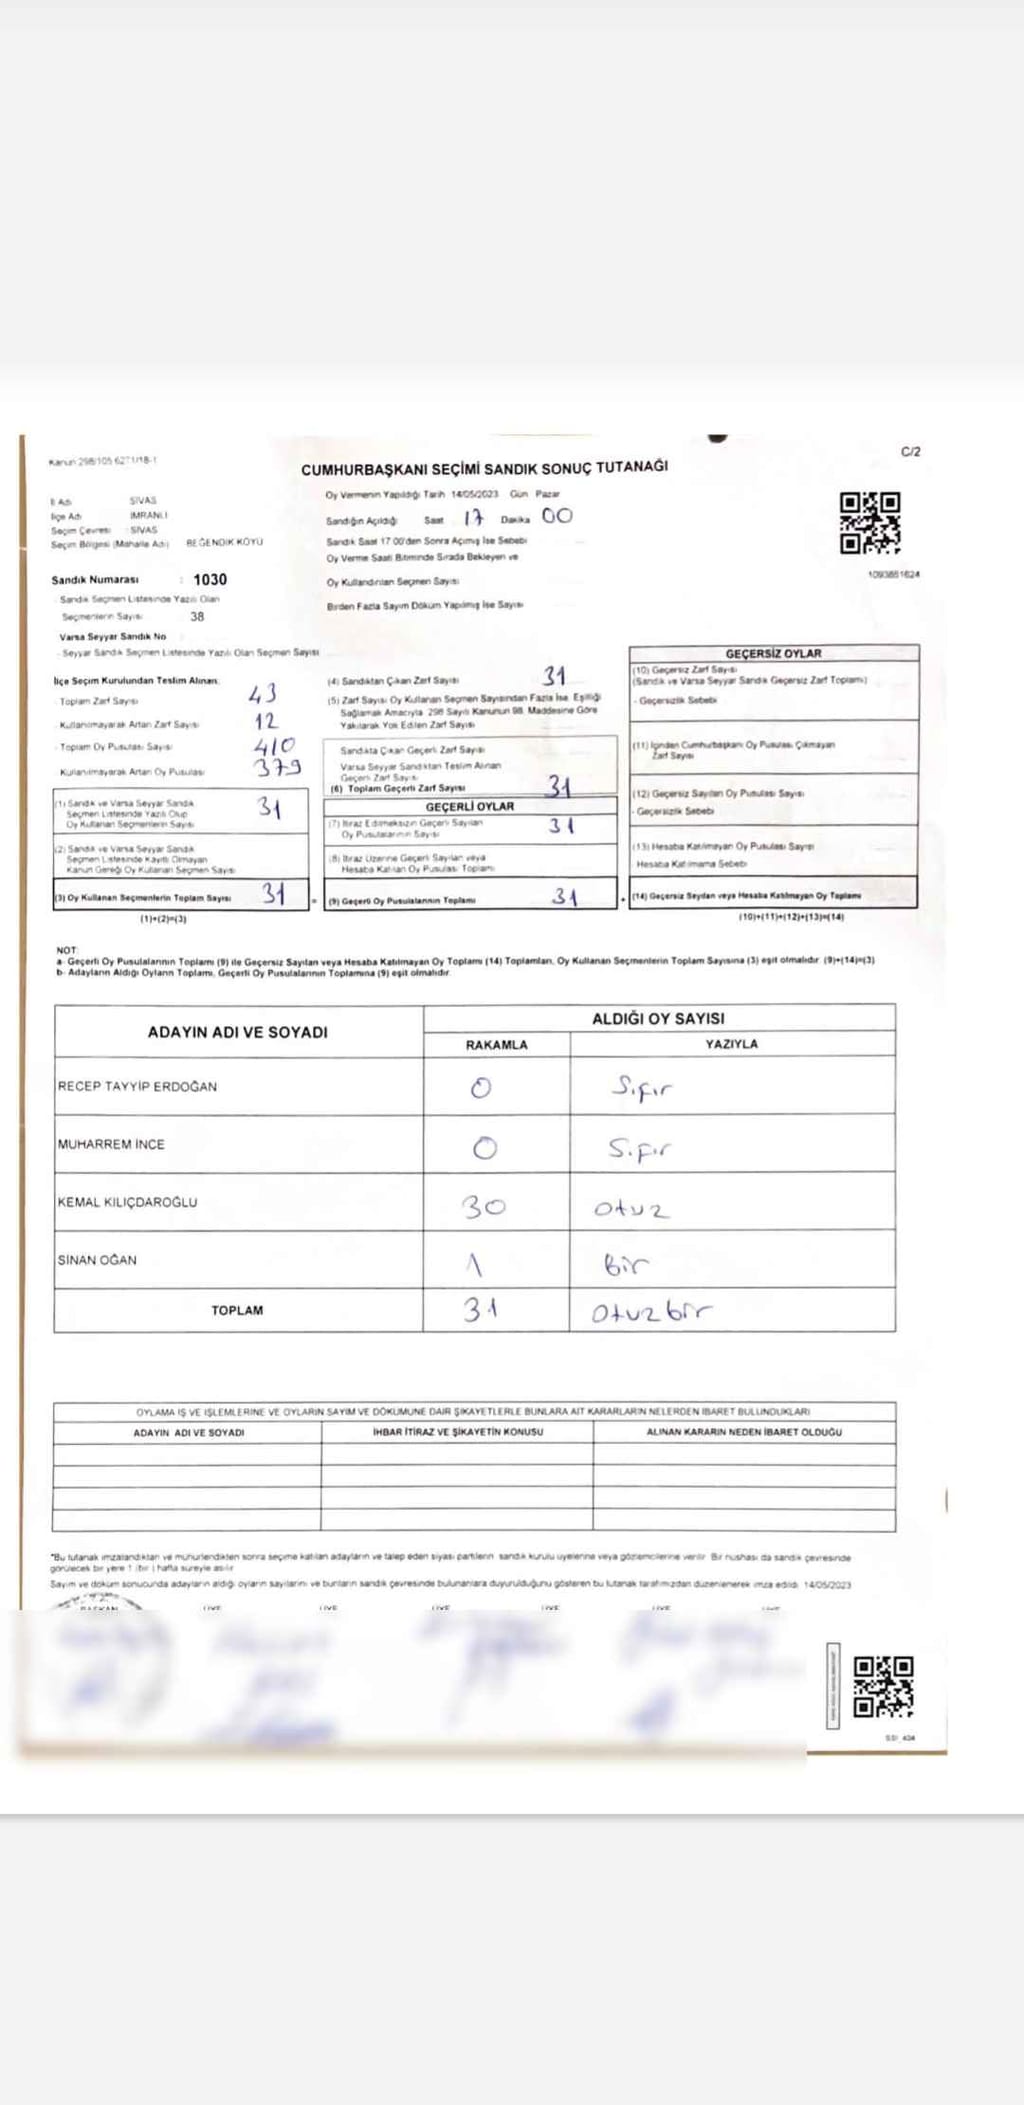 Kanun 298/105 6271/18-1
C/2
CUMHURBAŞKANI SEÇİMİ SANDIK SONUÇ TUTANAĞI
İl Adı SİVAS
İlçe Adı İMRANLI
Seçim Çevresi : SİVAS
Seçim Bölgesi (Mahalle Adı) BEĞENDİK KÖYÜ
Oy Vermenin Yapıldığı Tarih 14/05/2023 Gün Pazar
Sandığın Açıldığı Saat 17 Dakika 00
Sandık Saat 17 00'den Sonra Açımış İse Sebebi
Oy Verme Saati Bitiminde Sırada Bekleyen ve
Oy Kullandırılan Seçmen Sayısı
Birden Fazla Sayım Döküm Yapılmış İse Sayısı
1093851624
Sandık Numarası : 1030
- Sandık Seçmen Listesinde Yazılı Olan
Seçmenlerin Sayısı 38
Varsa Seyyar Sandık No
- Seyyar Sandık Seçmen Listesinde Yazılı Olan Seçmen Sayısı
İlçe Seçim Kurulundan Teslim Alınan:
Toplam Zarf Sayısı 43
- Kullanılmayarak Artan Zarf Sayısı 12
- Toplam Oy Pusulası Sayısı 410
Kullanılmayarak Artan Oy Pusulası 379
(1) Sandık ve Varsa Seyyar Sandık
Seçmen Listesinde Yazılı Olup
Oy Kullanan Seçmenlerin Sayısı 31
(2) Sandık ve Varsa Seyyar Sandık
Seçmen Listesinde Kayıtlı Olmayan
Kanun Gereği Oy Kullanan Seçmen Sayısı
(3) Oy Kullanan Seçmenlerin Toplam Sayısı 31
(1)+(2)=(3)
(4) Sandıktan Çıkan Zarf Sayısı 31
(5) Zarf Sayısı Oy Kullanan Seçmen Sayısından Fazla İse, Eşitliği
Sağlamak Amacıyla 298 Sayılı Kanunun 98. Maddesine Göre
Yakılarak Yok Edilen Zarf Sayısı
Sandıkta Çıkan Geçerli Zarf Sayısı
Varsa Seyyar Sandıktan Teslim Alınan
Geçerli Zarf Sayısı
(6) Toplam Geçerli Zarf Sayısı 31
GEÇERLİ OYLAR
(7) İtiraz Edilmeksizin Geçerli Sayılan
Oy Pusulalarının Sayısı 31
(8) İtiraz Üzerine Geçerli Sayılan veya
Hesaba Katılan Oy Pusulası Toplamı
= (9) Geçerli Oy Pusulalarının Toplamı 31
GEÇERSİZ OYLAR
(10) Geçersiz Zarf Sayısı
(Sandık ve Varsa Seyyar Sandık Geçersiz Zarf Toplamı)
- Geçersizlik Sebebi
(11) İçinden Cumhurbaşkanı Oy Pusulası Çıkmayan
Zarf Sayısı
(12) Geçersiz Sayılan Oy Pusulası Sayısı
- Geçersizlik Sebebi
(13) Hesaba Katılmayan Oy Pusulası Sayısı
Hesaba Katılmama Sebebi
+ (14) Geçersiz Sayılan veya Hesaba Katılmayan Oy Toplamı
(10)+(11)+(12)+(13)=(14)
NOT:
a- Geçerli Oy Pusulalarının Toplamı (9) ile Geçersiz Sayılan veya Hesaba Katılmayan Oy Toplamı (14) Toplamları, Oy Kullanan Seçmenlerin Toplam Sayısına (3) eşit olmalıdır. (9)+(14)=(3)
b- Adayların Aldığı Oyların Toplamı, Geçerli Oy Pusulalarının Toplamına (9) eşit olmalıdır.
ADAYIN ADI VE SOYADI ALDIĞI OY SAYISI
RAKAMLA YAZIYLA
RECEP TAYYİP ERDOĞAN 0 Sıfır
MUHARREM İNCE 0 Sıfır
KEMAL KILIÇDAROĞLU 30 otuz
SİNAN OĞAN 1 Bir
TOPLAM 31 otuzbir
OYLAMA İŞ VE İŞLEMLERİNE VE OYLARIN SAYIM VE DÖKÜMÜNE DAİR ŞİKAYETLERLE BUNLARA AİT KARARLARIN NELERDEN İBARET BULUNDUKLARI
ADAYIN ADI VE SOYADI İHBAR İTİRAZ VE ŞİKAYETİN KONUSU ALINAN KARARIN NEDEN İBARET OLDUĞU
*Bu tutanak imzalandıktan ve mühürlendikten sonra seçime katılan adayların ve talep eden siyasi partilerin sandık kurulu üyelerine veya gözlemcilerine verilir. Bir nüshası da sandık çevresinde
görülecek bir yere 1 (bir) hafta süreyle asılır.
Sayım ve döküm sonucunda adayların aldığı oyların sayılarını ve bunların sandık çevresinde bulunanlara duyurulduğunu gösteren bu tutanak tarafımızdan düzenlenerek imza edildi. 14/05/2023
BAŞKAN ÜYE ÜYE ÜYE ÜYE ÜYE ÜYE